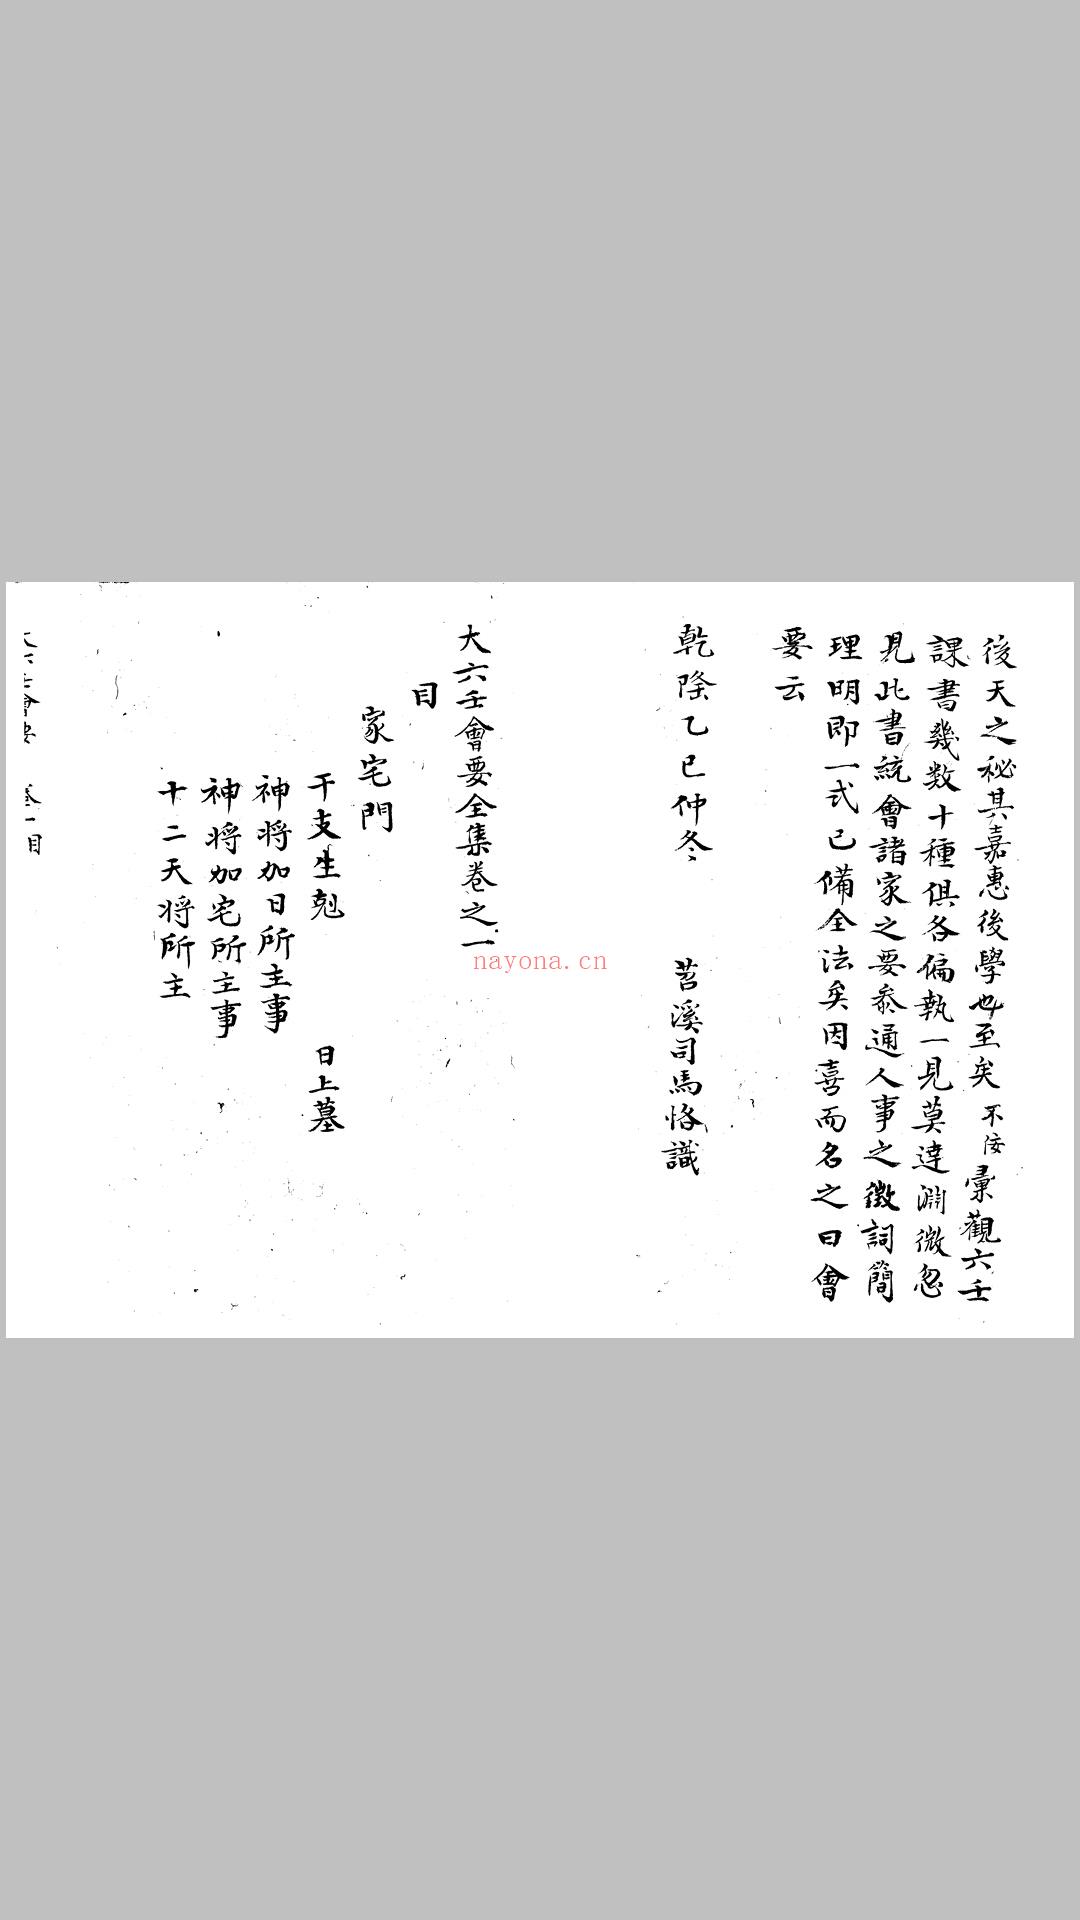 後天之秘其嘉惠後學也至矣不佞彙觀六壬
課書幾数十種俱各偏執一見莫達淵微忽
見此書統會諸家之要叅通人事之徵詞簡
理明即一式已備全法矣因喜而名之曰會
要云
乾隆乙巳仲冬 苕溪司馬恪識
大六壬會要全集卷之一
目
家宅門
干支生剋 日上墓
神将加日所主事
神将加宅所主事
十二天将所主
大六壬會要 卷一目
nayona.cn